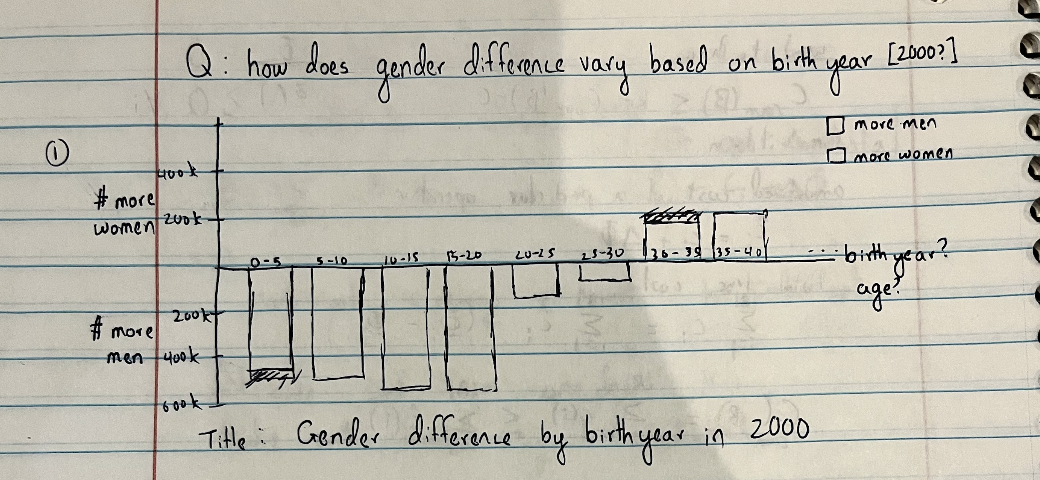 Q: how does gender difference vary based on birth year [2000?]
①
□ more men
□ more women
400k
# more
women
200k
0-5 5-10 10-15 15-20 20-25 25-30 30-35 35-40 ... birth year?
age?
200k
# more
men
400k
600k
Title: Gender difference by birth year in 2000